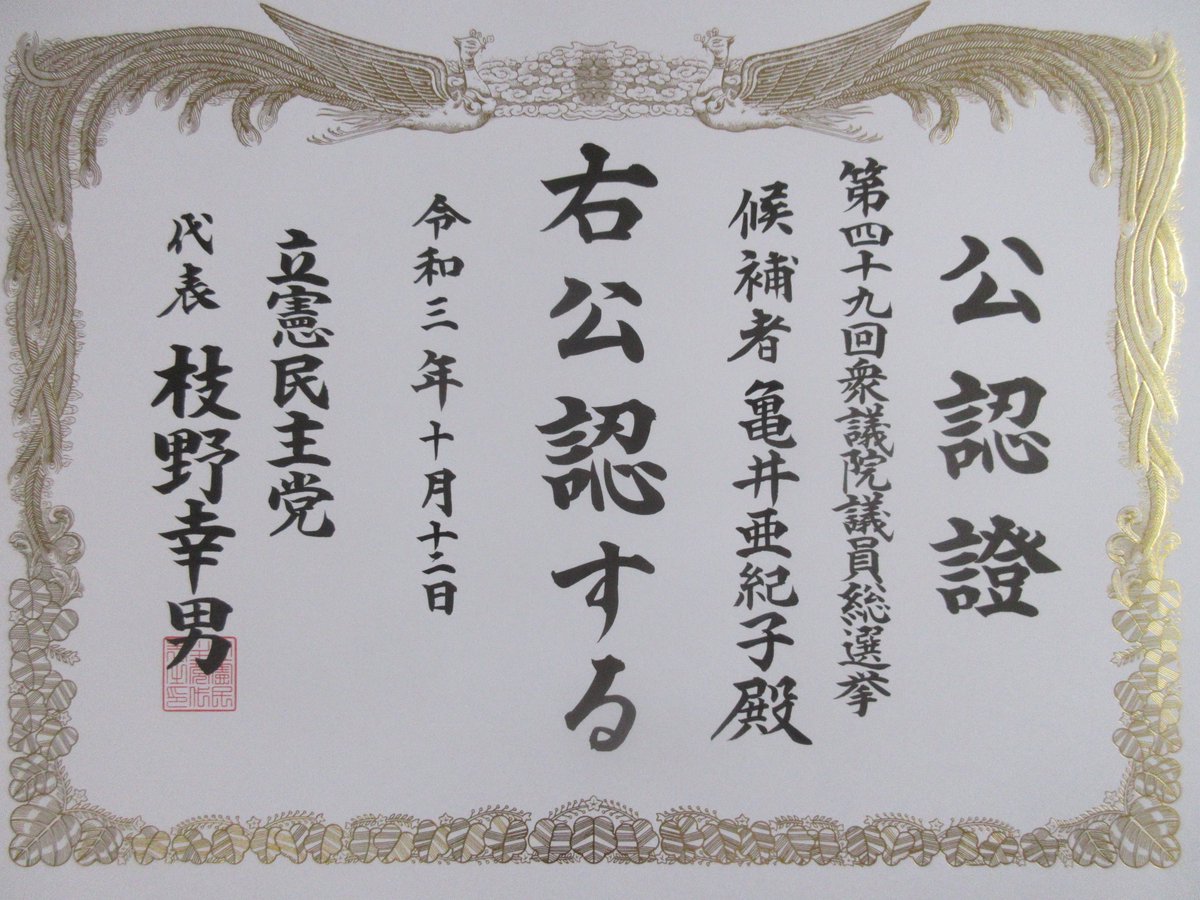 公認證
第四十九回衆議院議員総選挙
候補者亀井亜紀子殿
右公認する
令和三年十月十二日
立憲民主党
代表 枝野幸男